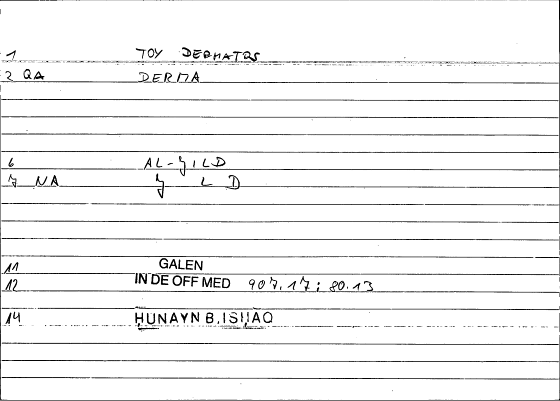 1 TOY DERMATOS
2 QA DERMA
6 AL-ǦILD
7 NA Ǧ L D
11 GALEN
12 IN DE OFF MED 907.17; 80.13
14 ḤUNAYN B. ISḤAQ